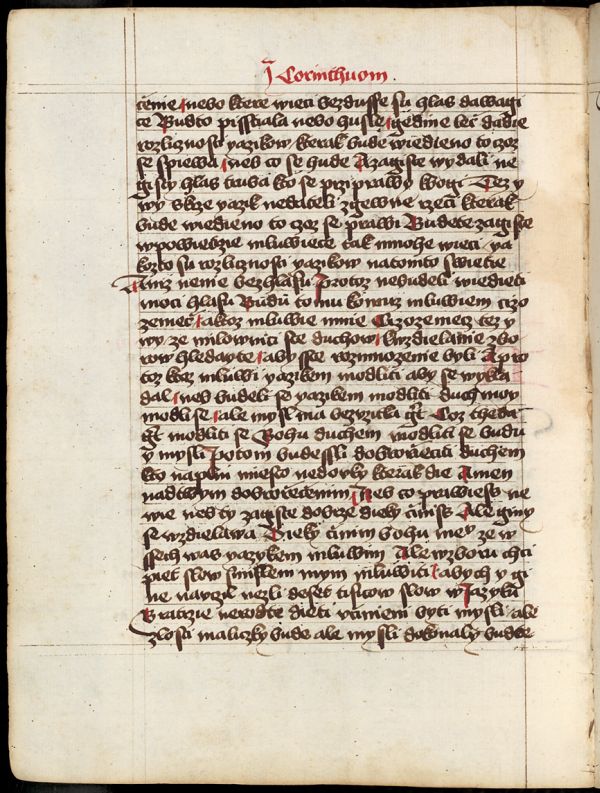 J Corinthuom .
cenie nebo ktere wieci bezdusse su hlas dawagi
ce Budto pisstiala nebo husle gedine lec dadie
rozliznosti yazikow kterak bude wiedieno to czoz
se spiewa neb co se hude A zagiste wydali ne
gisty hlas truba kto se przi prawy kbogi Tez y
wy skrze yazik nedateli zgewne rzeci kterak
bude wiedieno to czoz se prawi Budete zagiste
wpowiedrzie mluwiece tak mnohe wieci ya
kozto su rozliznosti yazikow natomto swietie
A niz nenie bezhlasu protoz nebudeli wiedieti
moci hlasu Budu tomu komuz mluwiem czizo
zemec a ktoz mluwie mnie Czizozemecz tez y
wy ze milownici ste duchow kwzdielanie zbo
row hledayte abysste rozmnozenie byli A pro
toz ktoz mluwi yazikem modliti aby se wykla
dal neb budeli se yazikem modliti duch moy
modli se ale mysl ma bezuzitku gt Coz theda
gt modliti se Bohu duchem modliti se budu
y mysli potom budessli dobrorzeciti duchem
kto naplni miesto nedouky kterak die Amen
nadtwym dobrorzecenim Neb co prawiess ne
wie neb ty zagiste dobrze dieky cziniss Ale giny
se wzdielawa Dieky czinim bohu mey ze w
ssech was yazykem mluwim Ale wzboru chci
piet slow smislem mym mluwiti abych y gi
ne nauczil nezli deset tisicow slow w Jazyku
Bratrzie nerodte dieti ucinieni byti mysli ale
zlosti maliczky bude ale mysli dokonaly budte